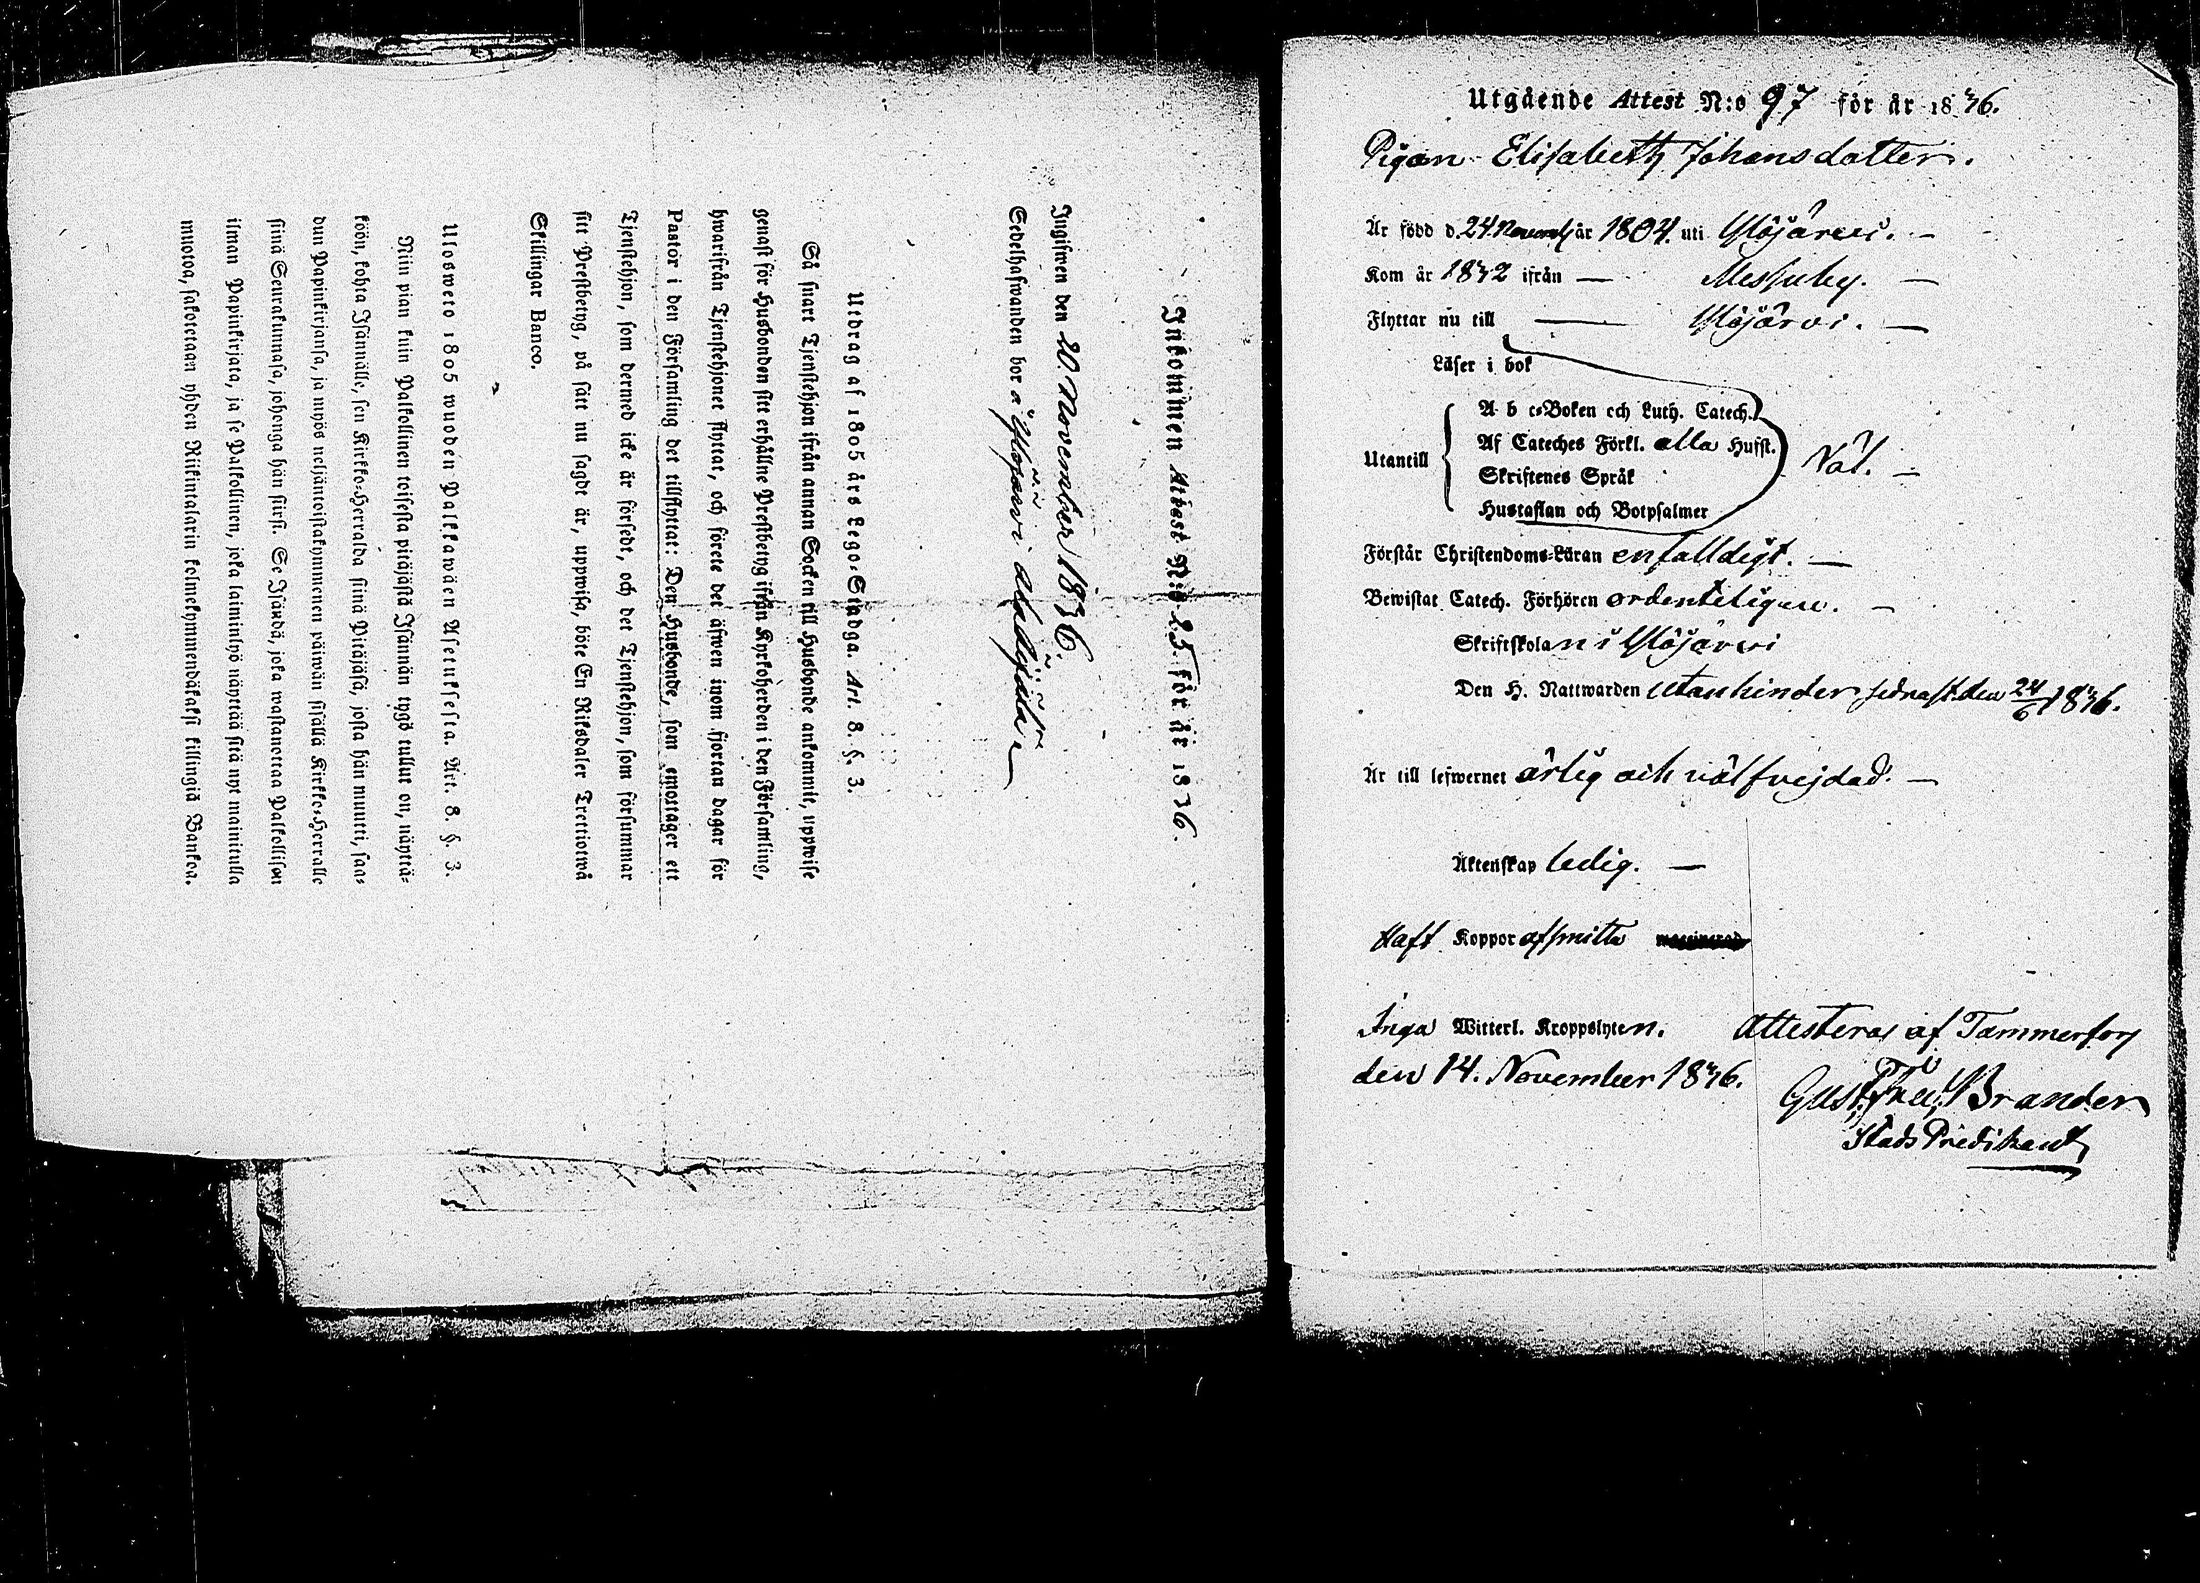 Inkommen Attest N:o 25. för år 1836.
Ingifwen den 20. November 1836.
Sedelhafwanden bor å Ylöjärvi alakylä
Utdrag af 1805 års Lego-Stadga. Art. 8. §. 3.
Så snart Tjenstehjon ifrån annan Socken till Husbonde ankommit, uppwise
genast för Husbonden sitt erhållne Prestbetyg ifrån Kyrkoherden i den Församling,
hwarifrån Tjenstehjonet flyttat, och förete det äfwen inom fjortan dagar för
Pastor i den Församling det tillflyttat: Den Husbonde, som emottager ett
Tjenstehjon, som dermed icke är försedt, och det Tjenstehjon, som försummar
sitt Prestbetyg, på sätt nu sagdt är, uppwisa, böte En Riksdaler Trettiotwå
Skillingar Banco.
Ulosweto 1805 wuoden Palkkawäen Asetuksesta. Art. 8. §. 3.
Niin pian kuin Palkollinen toisesta pitäjästä Isännän tygö tullut on, näyttä-
köön, kohta Isännälle, sen Kirkko-Herralda siinä Pitäjäsä, josta hän muutti, saa-
dun Papinkirjansa, ja myös neljäntoistakymmenen päiwän sisällä Kirkko-Herralle
siinä Seurakunnasa, johonga hän siirsi. Se Isändä, joka wastanottaa Palkollisen
ilman Papinkirjata, ja se Palkollinen, joka laiminlyö näyttää sitä nyt mainitulla
muotoa, sakotetaan yhden Riikintalarin kolmekymmendäkaksi killingiä Bankoa.
Utgående Attest N:o 97 för år 1836.
Pigan Elisabeth Johansdotter.
Är född d. 24 Novemb. år 1804. uti Ylöjärvi. —
Kom år 1832 ifrån — Messuby. —
Flyttar nu till — Ylöjärvi. —
Läser i bok
A b c-Boken och Luth. Catech.
Af Cateches Förkl. alla Husst.
Utantill Väl. —
Skriftenes Språk
Hustaflan och Botpsalmer
Förstår Christendoms-Läran enfalldigt. —
Bewistat Catech. Förhören ordenteligen. —
Skriftskolan i Ylöjärvi
Den H. Nattwarden utan hinder, sednast den 24/6 1836.
Är till lefwernet ärlig och välfrejdad. —
Äktenskap ledig. —
Haft Koppor afsmitta
Inga Witterl. Kroppslyten. Attesteras af Tammerfors
den 14. November 1836.
Gust. Fred. Brander
Stads Predikant